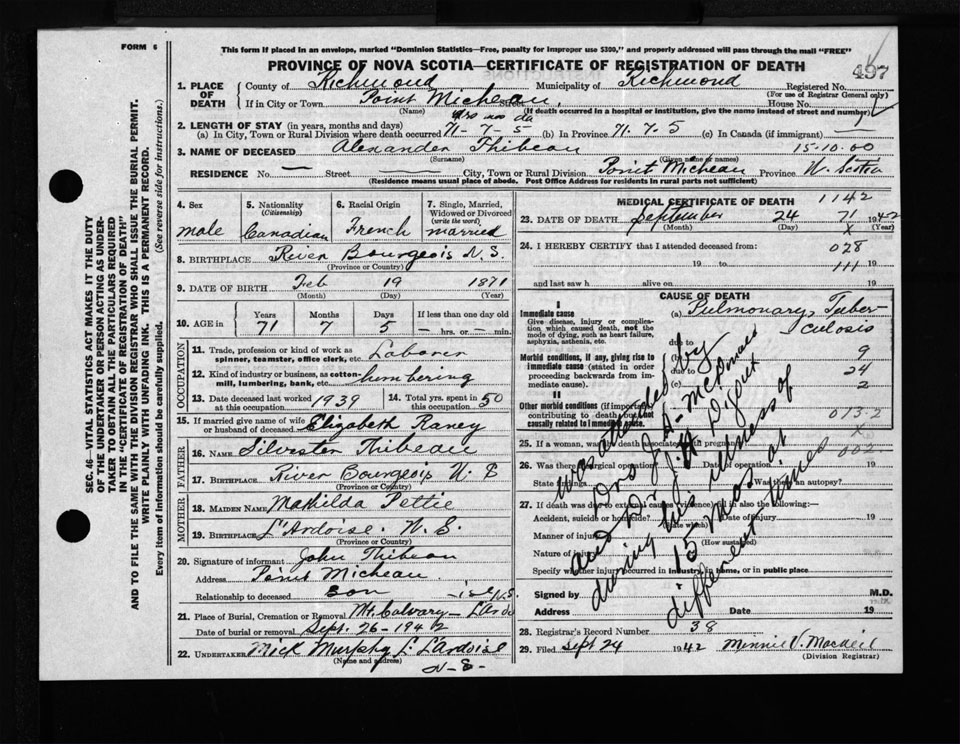 FORM 6
This form if placed in an envelope, marked "Dominion Statistics—Free, penalty for improper use $300," and properly addressed will pass through the mail "FREE"
PROVINCE OF NOVA SCOTIA—CERTIFICATE OF REGISTRATION OF DEATH
497
1. PLACE OF DEATH
County of Richmond Municipality of Richmond Registered No.
(For use of Registrar General only)
If in City or Town Point Micheau Street House No.
(Name) (If death occurred in a hospital or institution, give the name instead of street and number)
yrs mo da
2. LENGTH OF STAY (in years, months and days)
(a) In City, Town or Rural Division where death occurred 71-7-5 (b) In Province 71.7.5 (c) In Canada (if immigrant) —
3. NAME OF DECEASED Alexander Thibeau 15-10.00
(Surname) (Given name or names)
RESIDENCE No. — Street — City, Town or Rural Division Point Micheau Province N. Scotia
(Residence means usual place of abode. Post Office Address for residents in rural parts not sufficient)
4. Sex
male
5. Nationality
(Citizenship)
Canadian
6. Racial Origin
French
7. Single, Married, Widowed or Divorced
(write the word)
married
8. BIRTHPLACE River Bourgeois N.S.
(Province or Country)
9. DATE OF BIRTH Feb 19 1871
(Month) (Day) (Year)
10. AGE in
Years Months Days If less than one day
71 7 5 — hrs. or — min.
OCCUPATION
11. Trade, profession or kind of work as spinner, teamster, office clerk, etc. Laborer
12. Kind of industry or business, as cotton-mill, lumbering, bank, etc. lumbering
13. Date deceased last worked at this occupation 1939
14. Total yrs. spent in this occupation 50
15. If married give name of wife or husband of deceased Elizabeth Raney
FATHER
16. NAME Silvester Thibeau
17. BIRTHPLACE River Bourgeois N S
(Province or Country)
MOTHER
18. MAIDEN NAME Mathilda Pettie
19. BIRTHPLACE L'Ardoise. N. S.
(Province or Country)
20. Signature of informant John Thibeau
Address Point Micheau
Relationship to deceased son
21. Place of Burial, Cremation or Removal Mt. Calvary L'Ardoise N.S.
Date of burial or removal Sept. 26-1942
22. UNDERTAKER Mick Murphy L. L'Ardoise
(Name and address) N-S-
MEDICAL CERTIFICATE OF DEATH 1142
23. DATE OF DEATH September 24 71 1942
(Month) (Day) X (Year)
24. I HEREBY CERTIFY that I attended deceased from: 028
19 to 111 19
and last saw h alive on 19
CAUSE OF DEATH
I
Immediate cause
Give disease, injury or complication which caused death, not the mode of dying, such as heart failure, asphyxia, asthenia, etc.
(a) Pulmonary Tuberculosis
due to
Morbid conditions, if any, giving rise to immediate cause (stated in order proceeding backwards from immediate cause).
(b) 9
due to 24
(c) 2
II
Other morbid conditions (if important) contributing to death but not causally related to immediate cause. 013-2
X
25. If a woman, was the death associated with pregnancy? 002
26. Was there a surgical operation? Date of operation 19
State findings Was there an autopsy?
27. If death was due to external causes (violence) fill in also the following:
Accident, suicide or homicide? Date of injury 19
Manner of injury
(How sustained)
Nature of injury
Specify whether injury occurred in industry, in home, or in public place
was attended by
Drs J. A. McDonald
and Dr J. H Digout
during his illness of
15 mos at
different times
Signed by M.D.
Address Date 19
28. Registrar's Record Number 38
29. Filed Sept 24 1942 Minnie V. Macneil
(Division Registrar)
SEC. 46—VITAL STATISTICS ACT MAKES IT THE DUTY
OF THE UNDERTAKER OR PERSON ACTING AS UNDERTAKER TO OBTAIN ALL THE PARTICULARS REQUIRED
IN THE "CERTIFICATE OF REGISTRATION OF DEATH"
AND TO FILE THE SAME WITH THE DIVISION REGISTRAR WHO SHALL ISSUE THE BURIAL PERMIT.
WRITE PLAINLY WITH UNFADING INK. THIS IS A PERMANENT RECORD.
Every item of information should be carefully supplied. (See reverse side for instructions.)